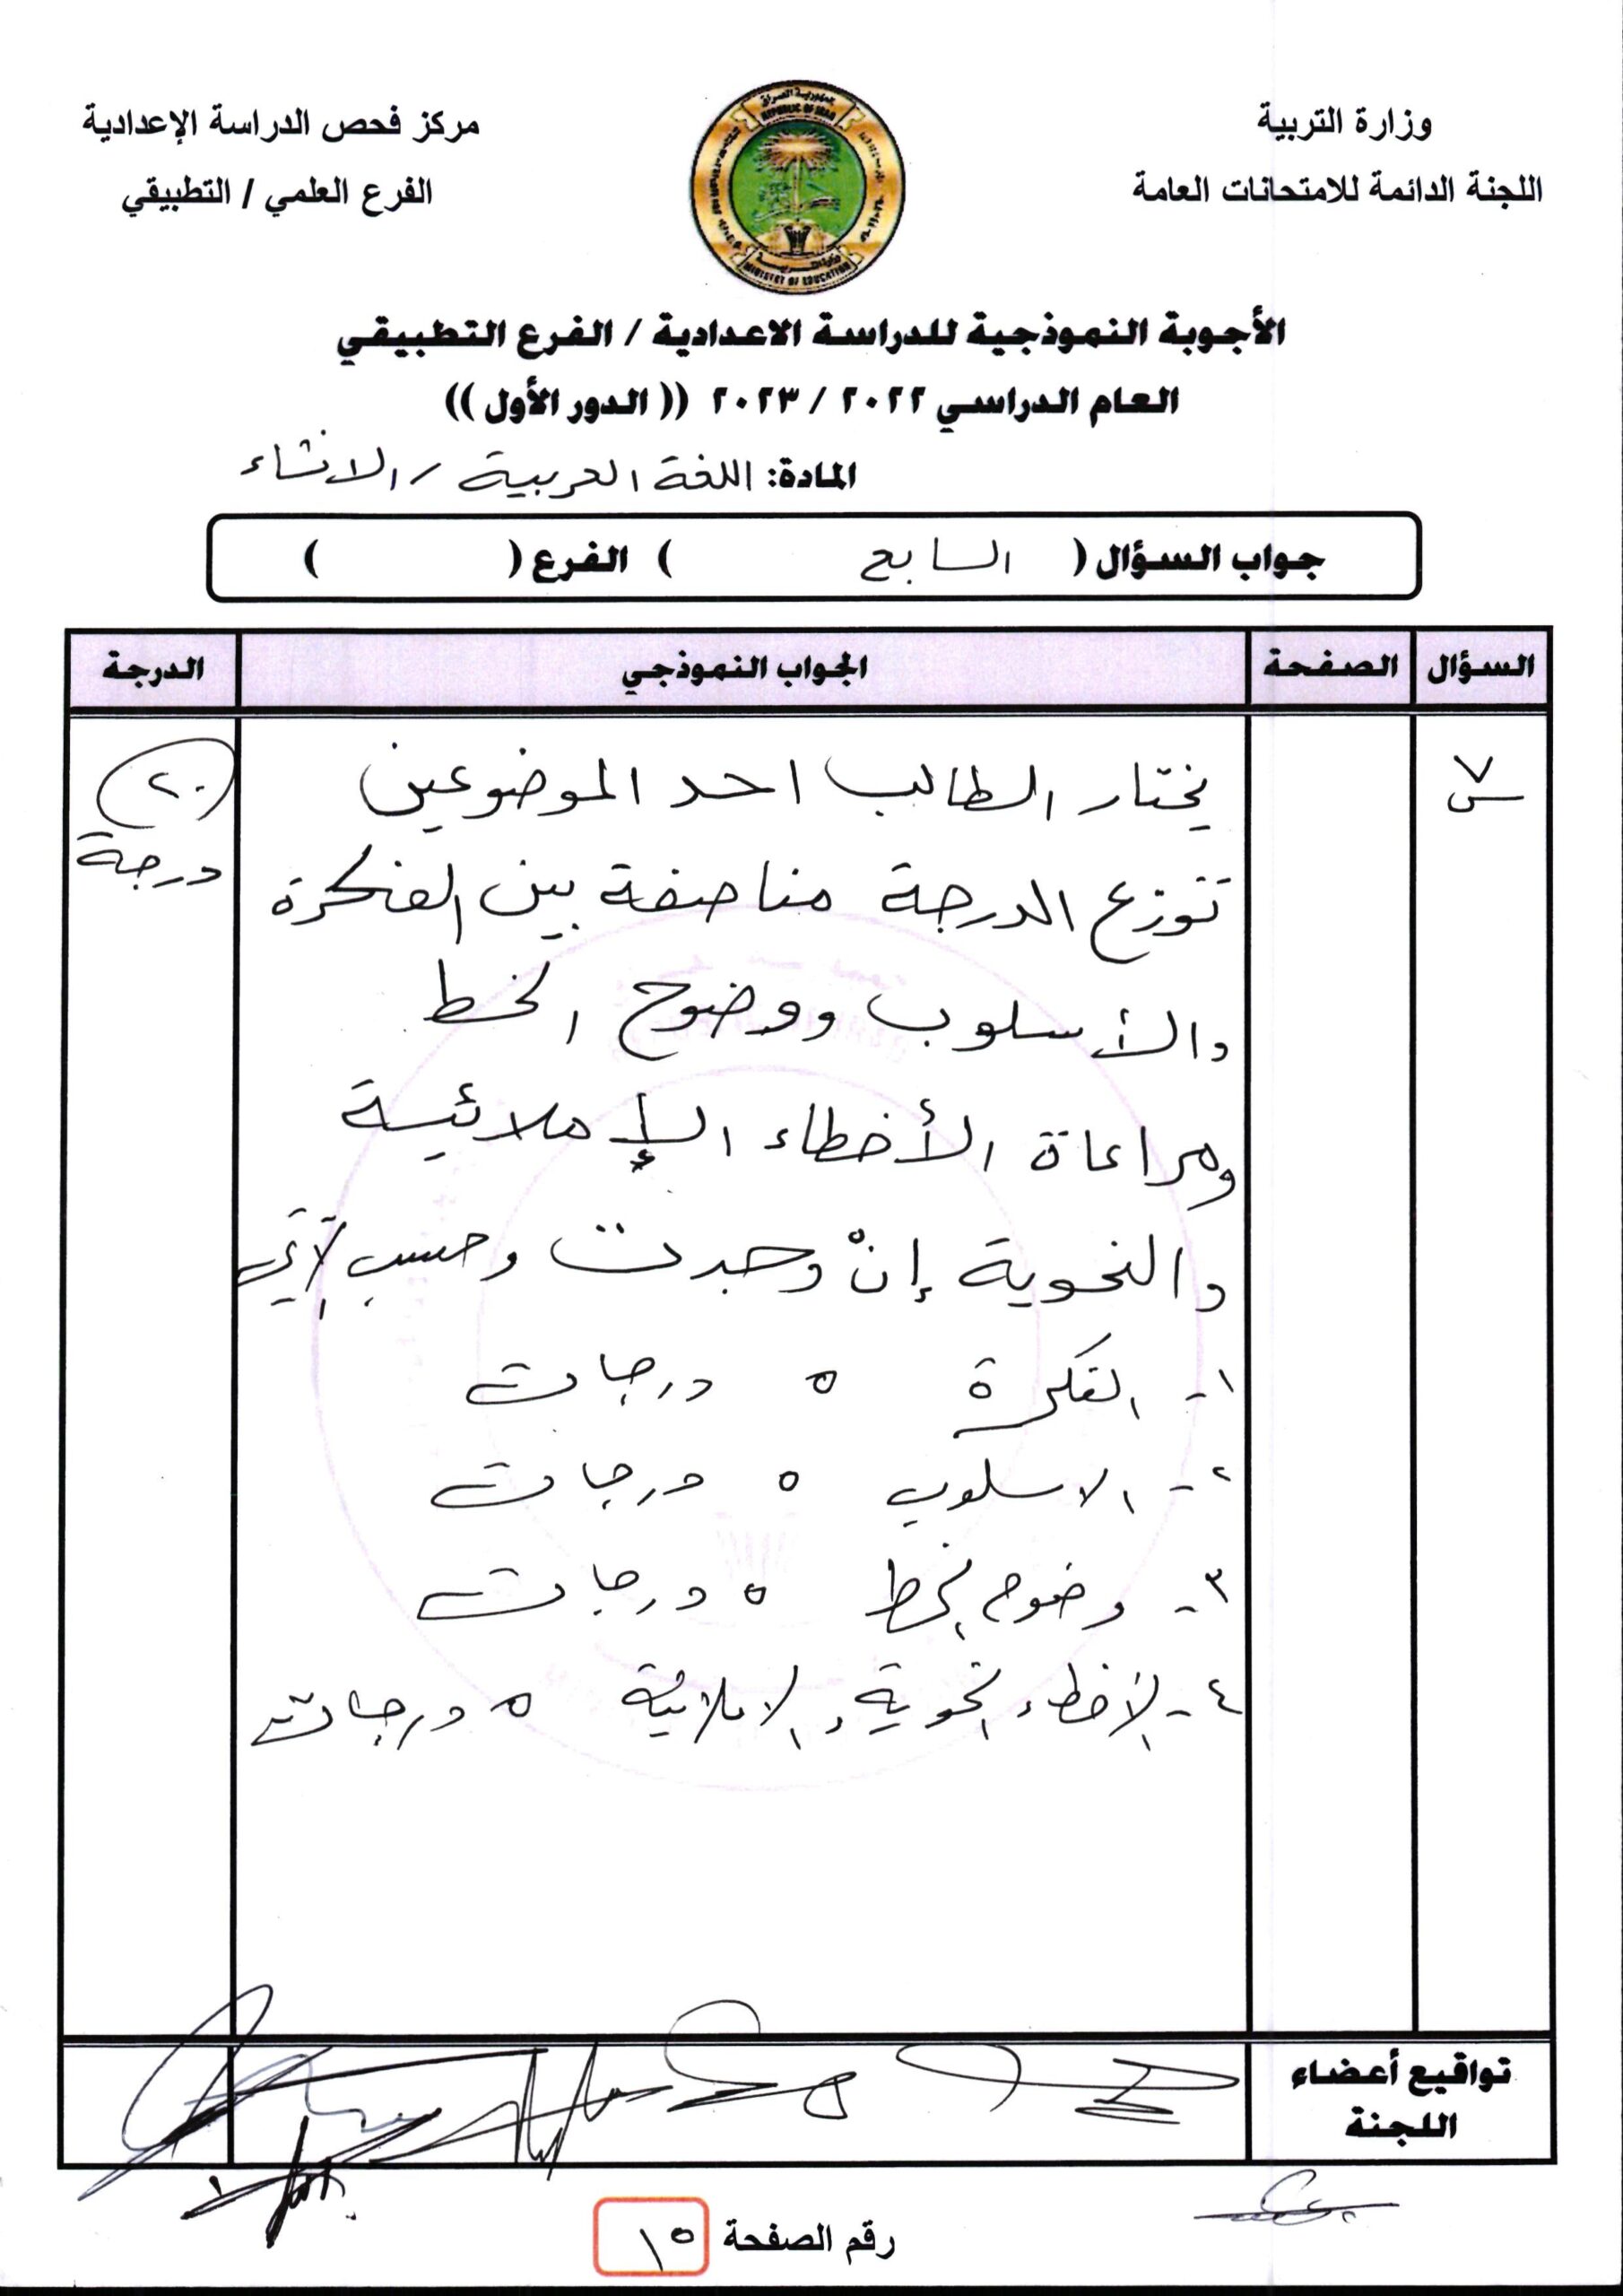 وزارة التربية
اللجنة الدائمة للامتحانات العامة
مركز فحص الدراسة الإعدادية
الفرع العلمي / التطبيقي
REPUBLIC OF IRAQ
MINISTRY OF EDUCATION
الأجوبة النموذجية للدراسة الاعدادية / الفرع التطبيقي
العام الدراسي ٢٠٢٢ / ٢٠٢٣ (( الدور الأول ))
المادة: اللغة العربية / الانشاء
جواب السؤال ( السابع ) الفرع ( )
السؤال الصفحة الجواب النموذجي الدرجة
س٧ يختار الطالب احد الموضوعين ٢٠
توزع الدرجة مناصفة بين الفكرة درجة
والأسلوب ووضوح الخط
ومراعاة الأخطاء الإملائية
والنحوية إنْ وجدت وحسب الآتي
١- الفكرة ٥ درجات
٢- الاسلوب ٥ درجات
٣- وضوح الخط ٥ درجات
٤- الأخطاء النحوية والاملائية ٥ درجات
تواقيع أعضاء
اللجنة
رقم الصفحة ١٥